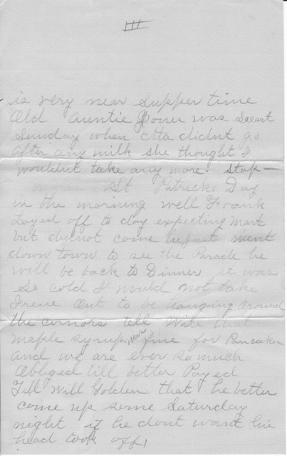 III
is very near supper time
Old Auntie was
Sunday when Etta didnt go
after any milk she thought I
wouldnt take any more! Stop —
St Patricks Day
in the morning well Frank
Layed off to day expecting
but did not come he just went
down town to see the Parade he
will be back to Dinner it was
so cold I would not take
Irene out to be hanging around
the cornors tell Will that
maple syrup was fine for Pancakes
and we are ever so much
obliged till better Payed
Tell Will Golden that he better
come up some Saturday
night if he dont want his
head took off!